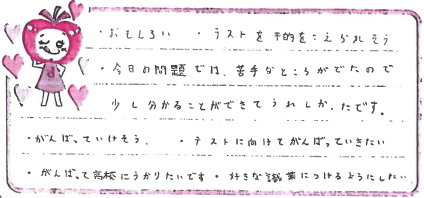 ・おもしろい ・テストを平均をこえられそう
・今日の問題では、苦手なところがでたので
少し分かることができてうれしかったです。
・がんばっていけそう、 ・テストに向けてがんばっていきたい
・がんばって高校にうかりたいです ・好きな職業につけるようにしたい